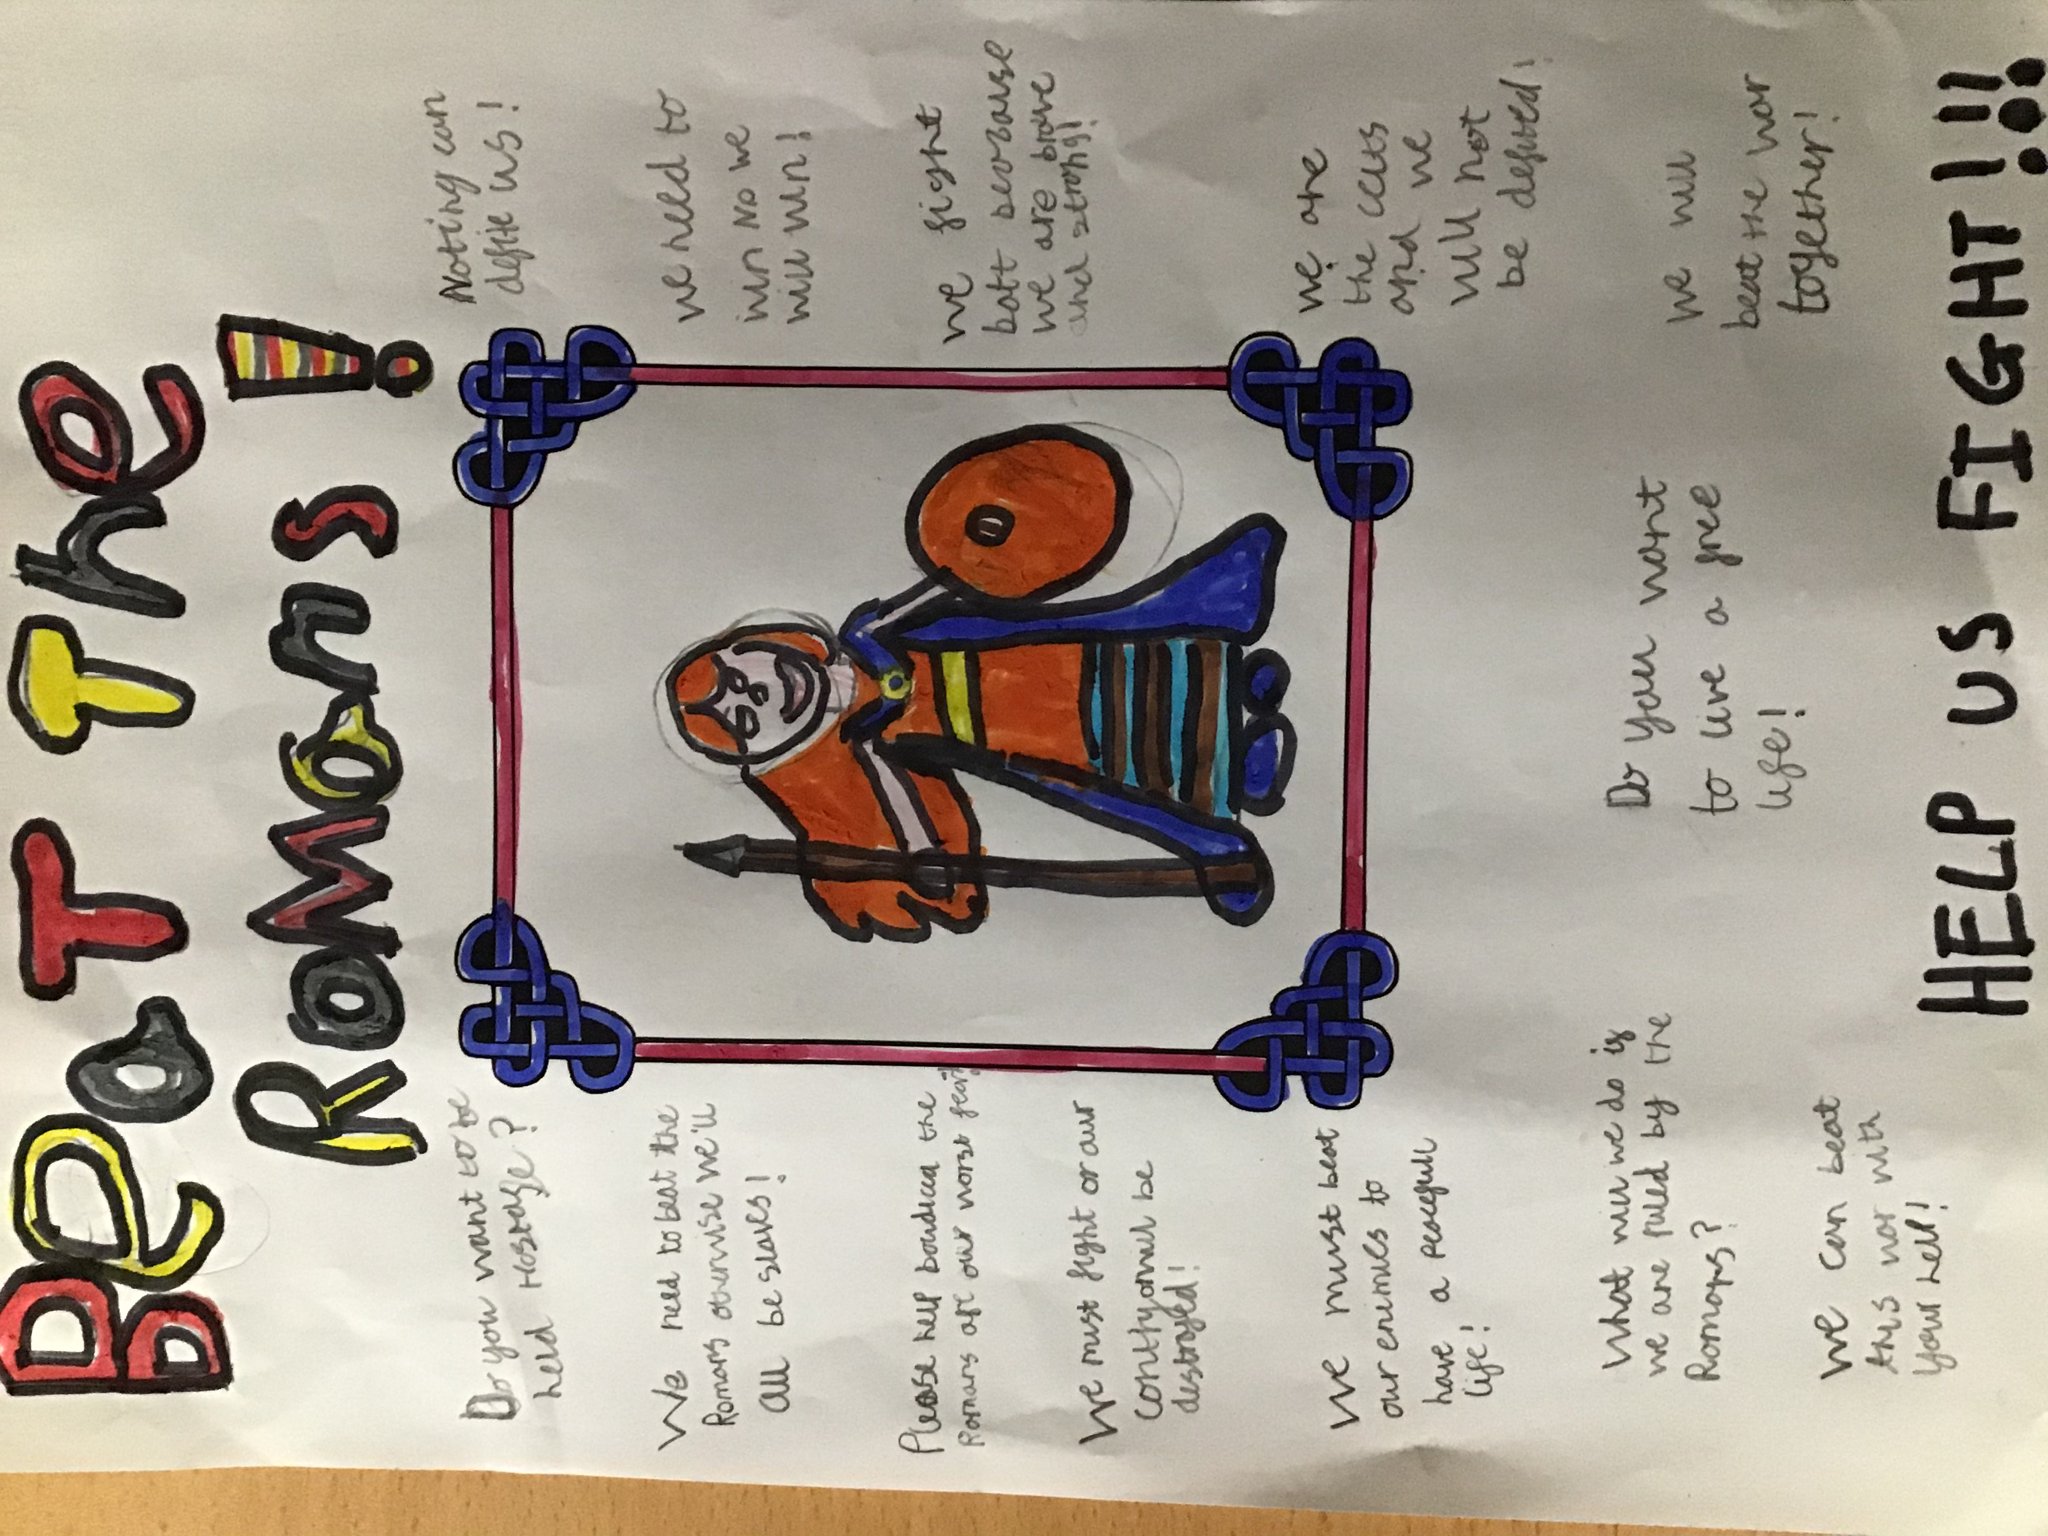 Beat The
Romans!
Do you want to be
held Hostage?
We need to beat the
Romans otherwise we'll
all be slaves!
Please help boudicca the
Romans are our worst fear!
We must fight or our
will be
destroyed!
We must beat
our enimies to
have a peacefull
life!
What will we do is
we are ruled by the
Romans?
We can beat
this war with
your help!
Noting can
defite us!
We need to
win No we
will win!
We fight
batt
we are brave
and strong!
We are
the celts
and we
will not
be defited!
Do you want
to live a free
life!
We will
beat the war
together!
HELP US FIGHT!!!